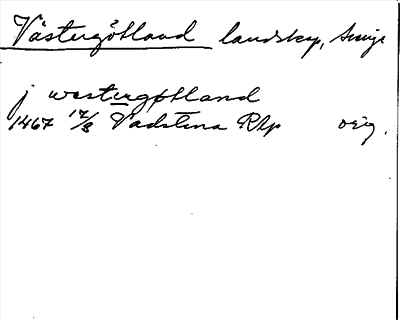 Västergötland landskap, Sverige
j westergøtland
1467 17/8 Vadstena Rkp orig.